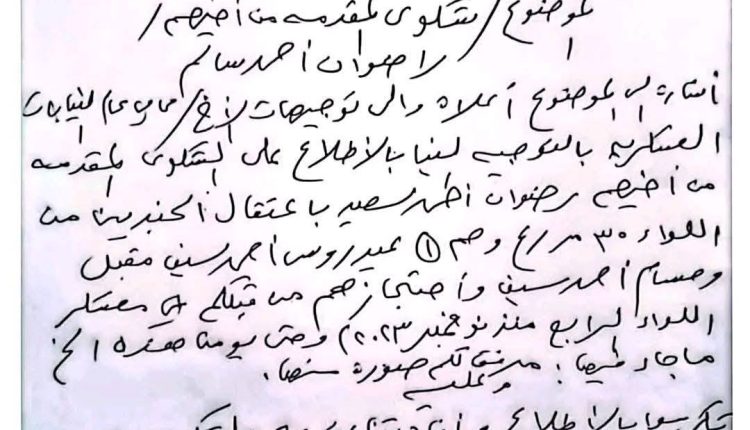 الموضوع / شكوى مقدمه من أخيهم /
رضوان احمد سالم
أشاره الى الموضوع أعلاه والى توجيهات الأخ / محامي عام النيابات
العسكريه بالتوجيه لنا بالأطلاع على الشكوى المقدمه
من أخيهم رضوان احمد سعيد باعتقال الجنديين من
اللواء ٣٠ مدرع وهم ① عيدروس احمد سيف مقبل
وحسام احمد سيف وأحتجازهم من قبلكم معسكر
اللواء الرابع منذ نوفمبر ٢٠٢٣م وحتى يومنا هذا الخ
ماجاء فيها: مرفق لكم صورة منها.
وعليه
بالأطلاع